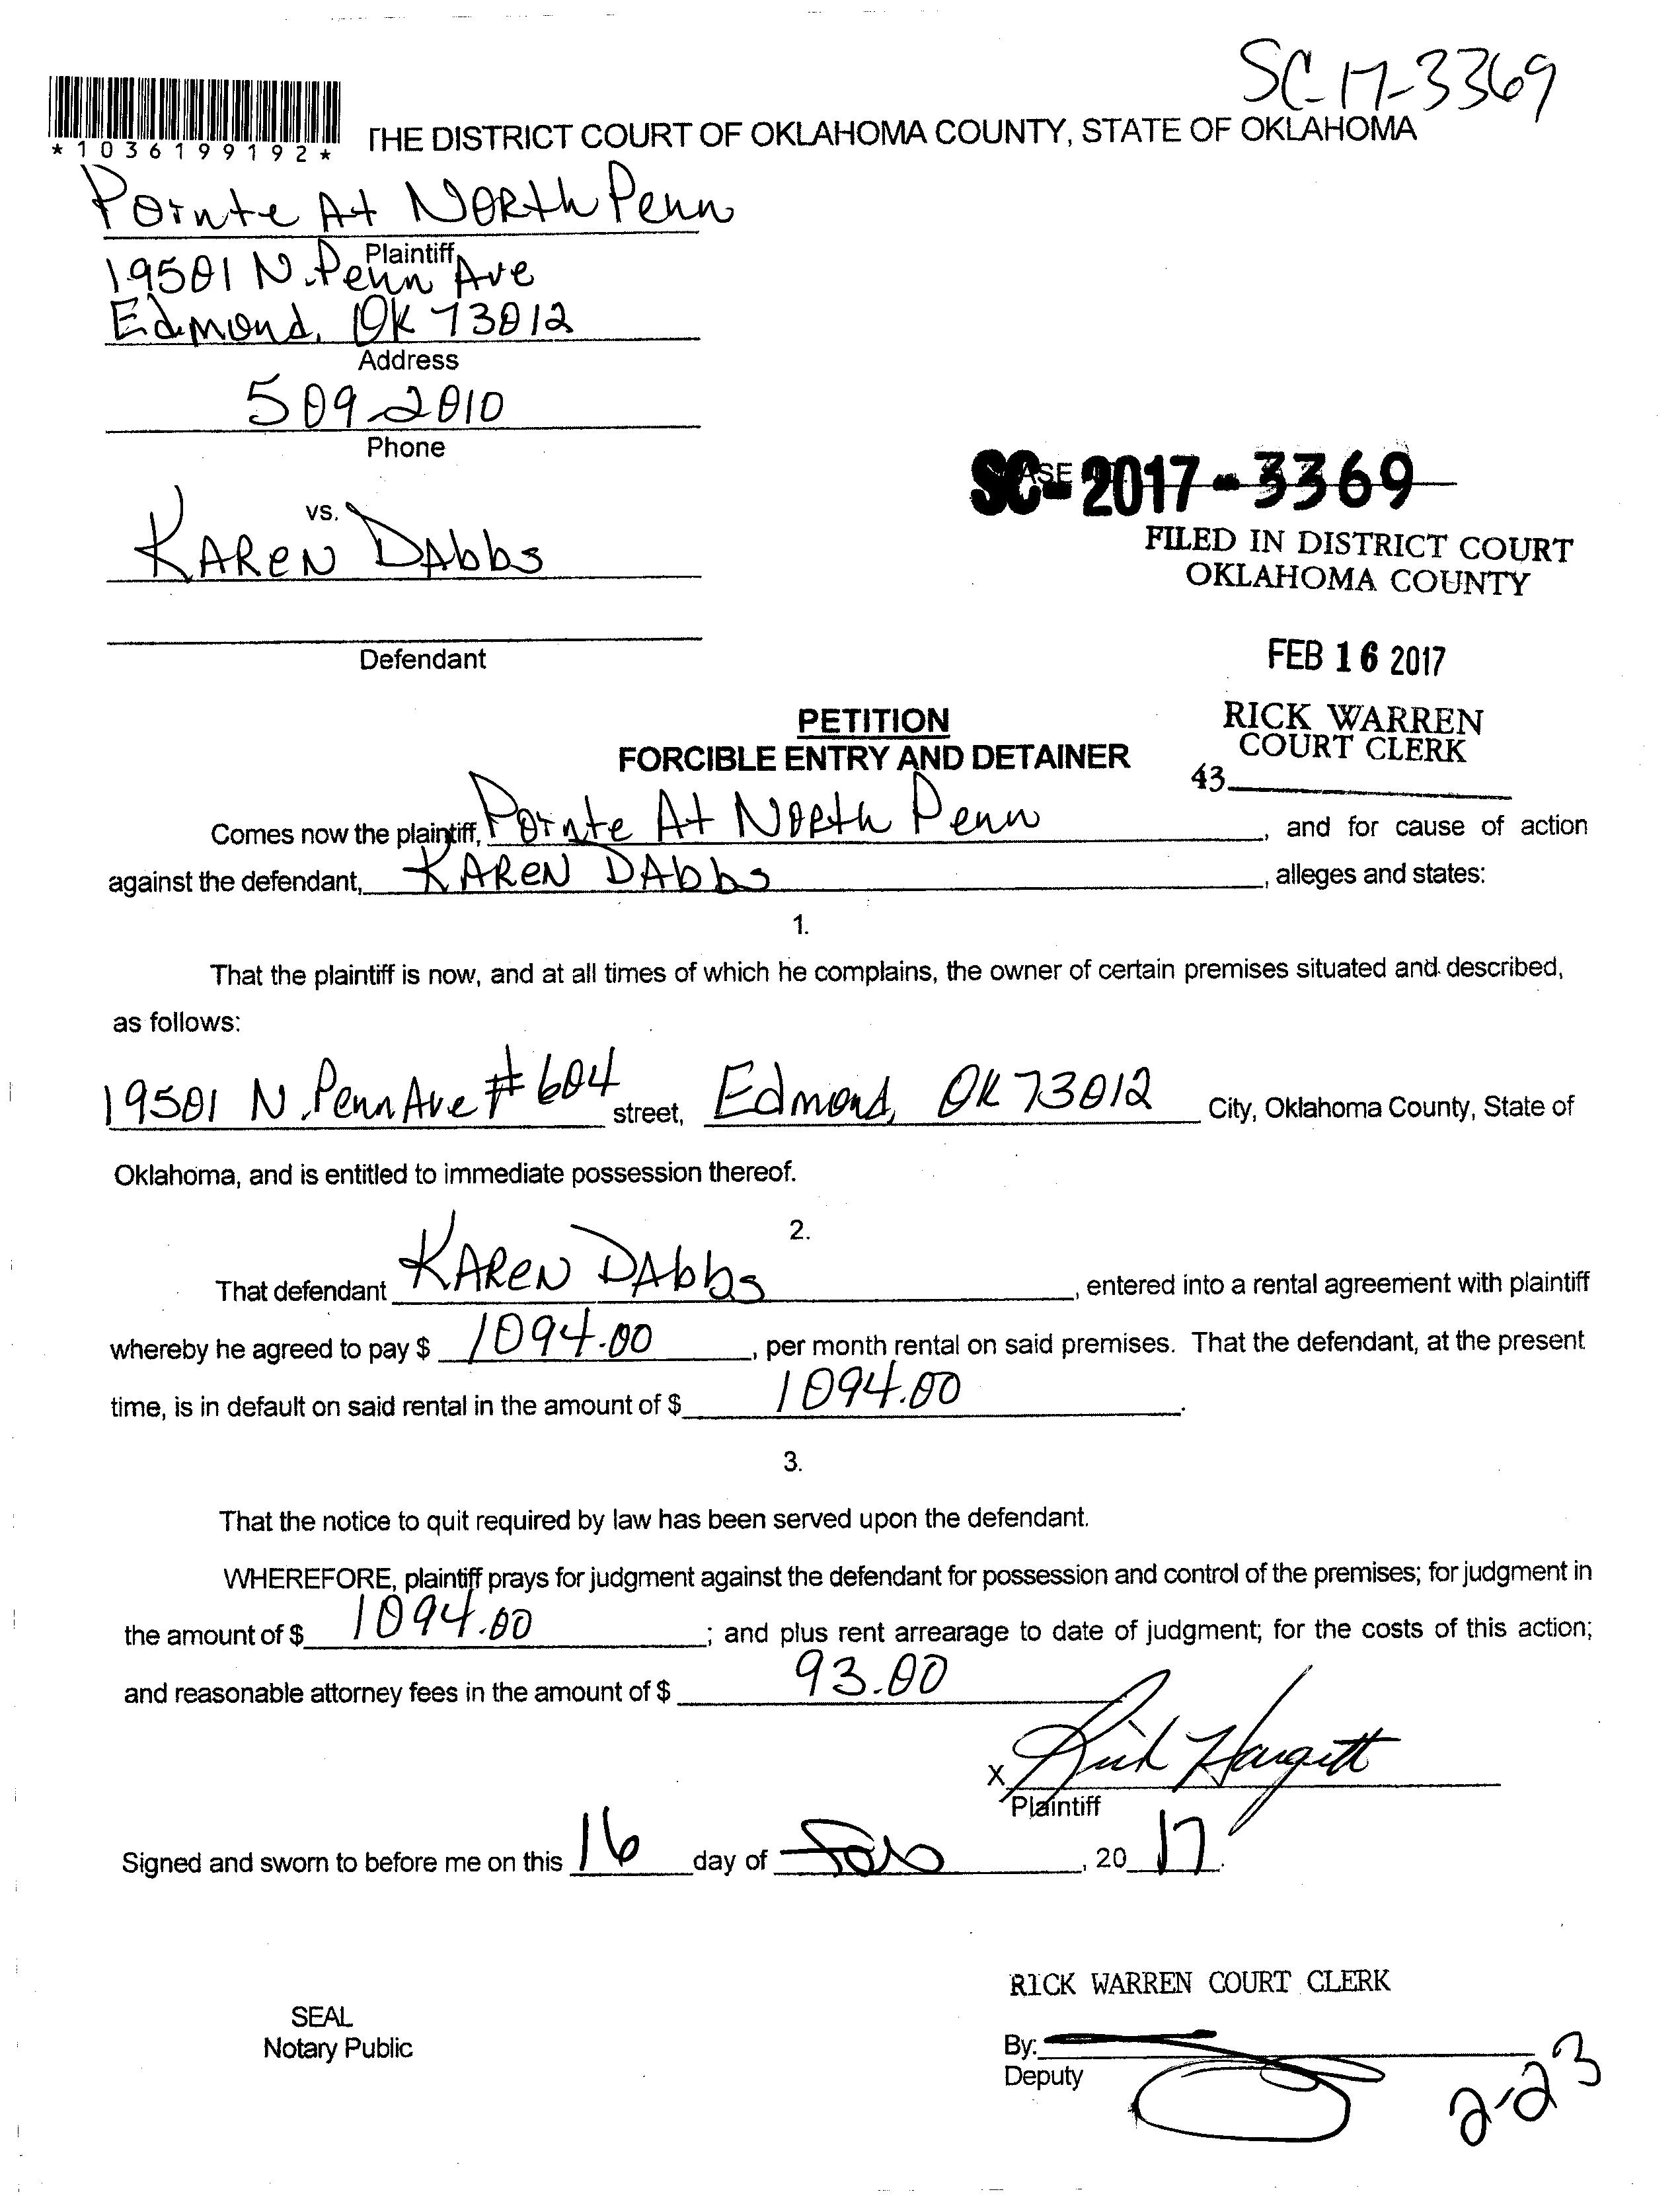 SC-17-3369
*1036199192*
THE DISTRICT COURT OF OKLAHOMA COUNTY, STATE OF OKLAHOMA
Pointe At North Penn
Plaintiff
19501 N. Penn Ave
Edmond, OK 73012
Address
509-2010
Phone
SC-2017-3369
FILED IN DISTRICT COURT
OKLAHOMA COUNTY
vs.
KAREN DAbbs
Defendant
FEB 16 2017
RICK WARREN
COURT CLERK
43
PETITION
FORCIBLE ENTRY AND DETAINER
Comes now the plaintiff, Pointe At North Penn, and for cause of action
against the defendant, KAREN DAbbs, alleges and states:
1.
That the plaintiff is now, and at all times of which he complains, the owner of certain premises situated and described,
as follows:
19501 N. Penn Ave #604 street, Edmond, OK 73012 City, Oklahoma County, State of
Oklahoma, and is entitled to immediate possession thereof.
2.
That defendant KAREN DAbbs, entered into a rental agreement with plaintiff
whereby he agreed to pay $ 1094.00, per month rental on said premises. That the defendant, at the present
time, is in default on said rental in the amount of $ 1094.00.
3.
That the notice to quit required by law has been served upon the defendant.
WHEREFORE, plaintiff prays for judgment against the defendant for possession and control of the premises; for judgment in
the amount of $ 1094.00; and plus rent arrearage to date of judgment; for the costs of this action;
and reasonable attorney fees in the amount of $ 93.00
X Rick Hargett
Plaintiff
Signed and sworn to before me on this 16 day of Feb, 20 17.
RICK WARREN COURT CLERK
SEAL
Notary Public
By:
Deputy
2-23